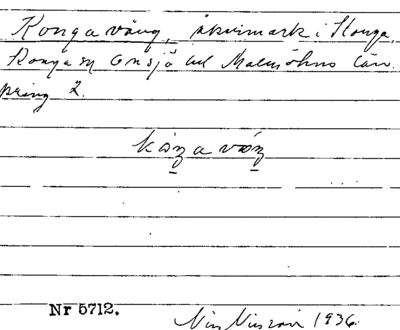 Konga vång, åkermark i Konga,
Konga sn Onsjö hd Malmöhus län.
pring 2.
Nr 5712.
Nils Nilsson 1936.